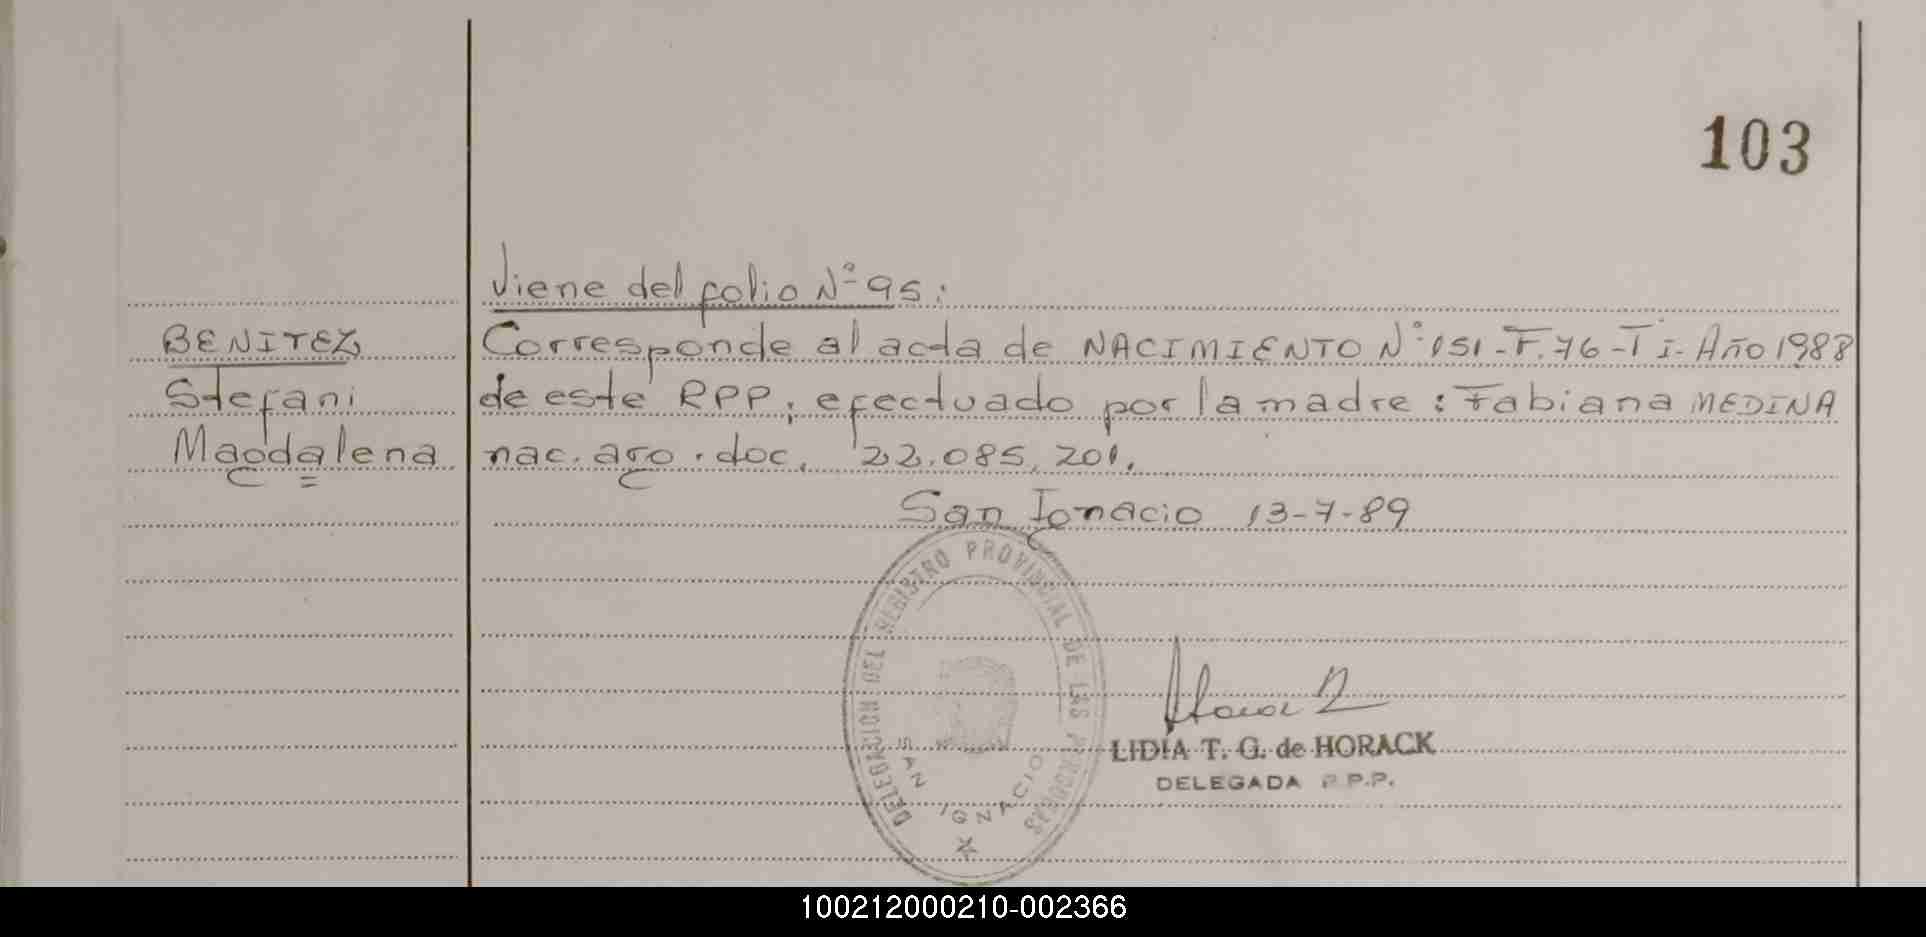 103
Viene del folio Nº 95:
BENITEZ
Stefani
Magdalena
Corresponde al acta de NACIMIENTO Nº 151-F.76-T I-Año 1988
de este RPP; efectuado por la madre: Fabiana MEDINA
nac. arg. doc. 22.085.201.
San Ignacio 13-7-89
DELEGACION DEL REGISTRO PROVINCIAL DE LAS PERSONAS
SAN IGNACIO
LIDIA T. G. de HORACK
DELEGADA R.P.P.
100212000210-002366